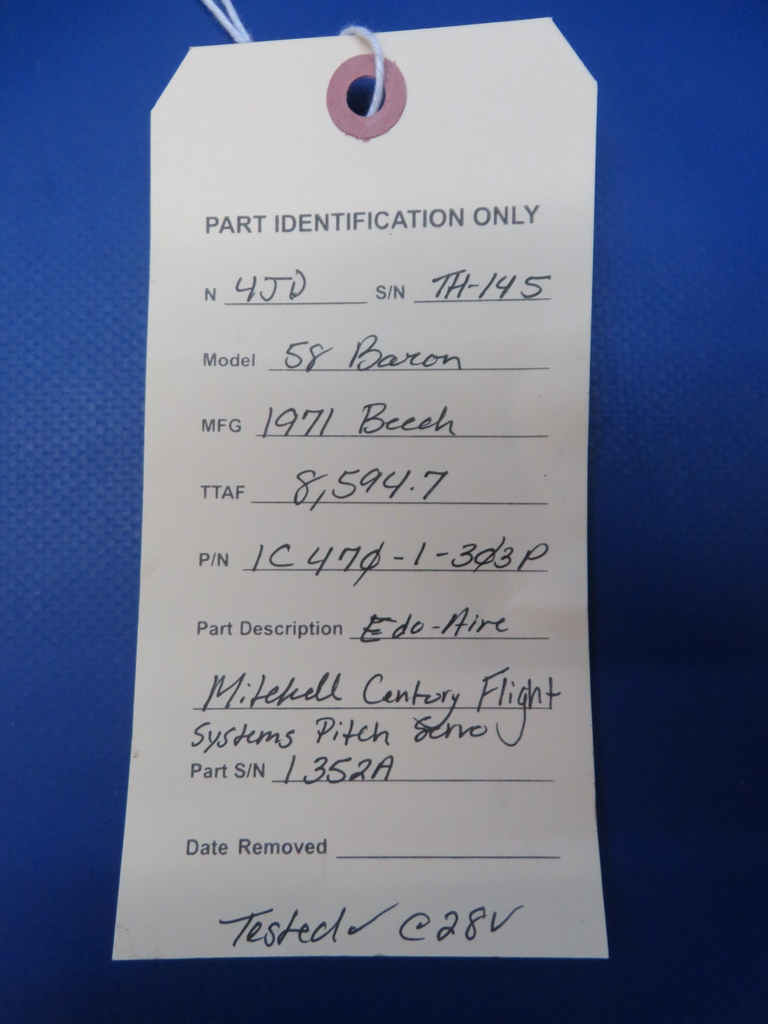 PART IDENTIFICATION ONLY
N 4JD S/N TH-145
Model 58 Baron
MFG 1971 Beech
TTAF 8,594.7
P/N 1C470-1-303P
Part Description Edo-Aire
Mitchell Century Flight
Systems Pitch Servo
Part S/N 1352A
Date Removed
Tested ✓ @28V